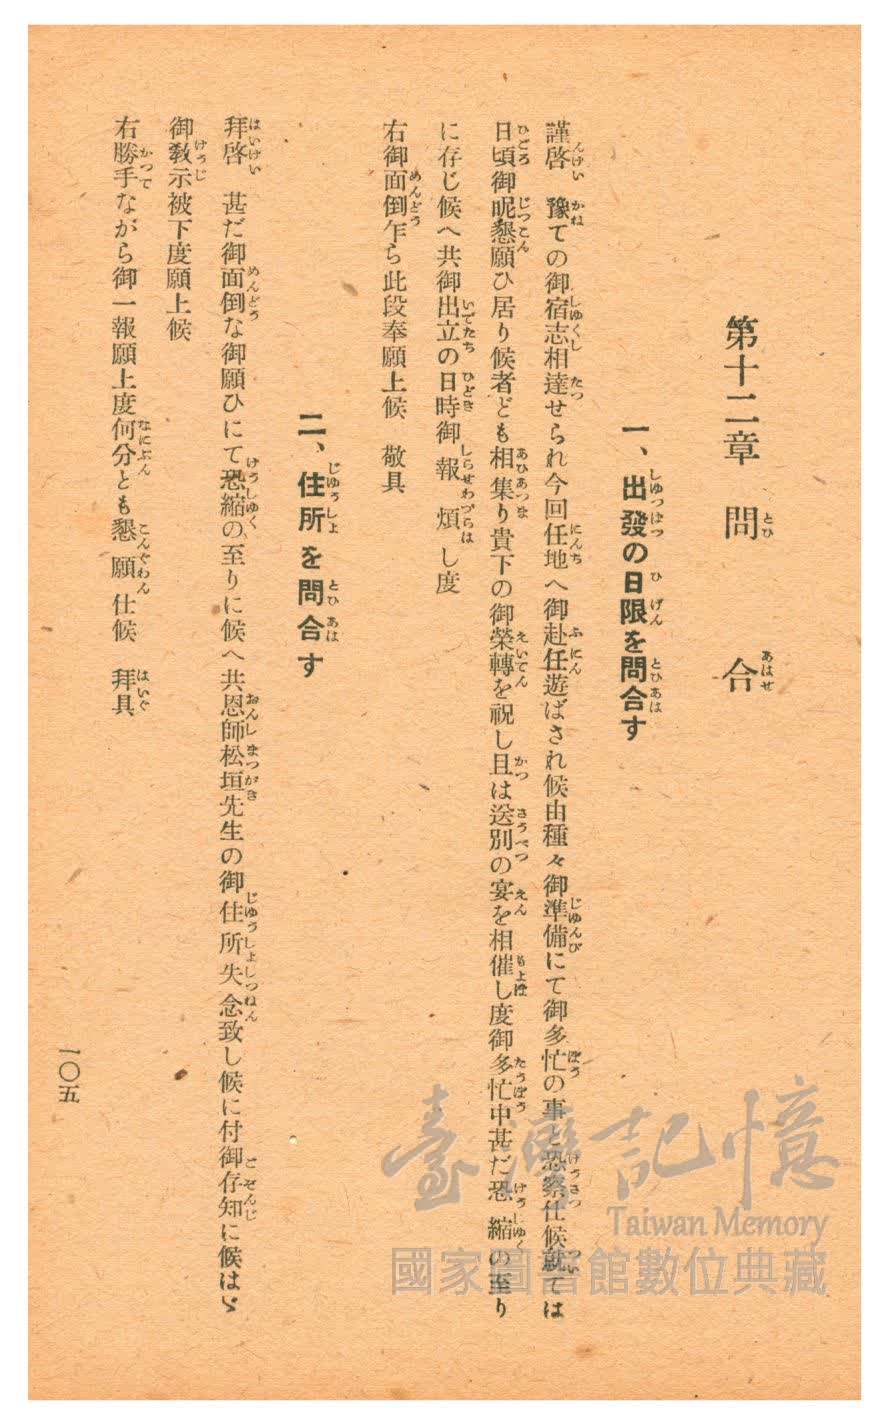 第十二章　問合
一、出發の日限を問合す
謹啓　豫ての御宿志相達せられ今回任地へ御赴任遊ばされ候由種々御準備にて御多忙の事と恐察仕候就ては
日頃御昵懇願ひ居り候者ども相集り貴下の御榮轉を祝し且は送別の宴を相催し度御多忙中甚だ恐縮の至り
に存じ候へ共御出立の日時御報煩し度
右御面倒乍ら此段奉願上候、敬具
二、住所を問合す
拜啓　甚だ御面倒な御願ひにて恐縮の至りに候へ共恩師松垣先生の御住所失念致し候に付御存知に候はゞ
御敎示被下度願上候
右勝手ながら御一報願上度何分とも懇願仕候　拜具
一〇五
臺灣記憶
Taiwan Memory
國家圖書館數位典藏